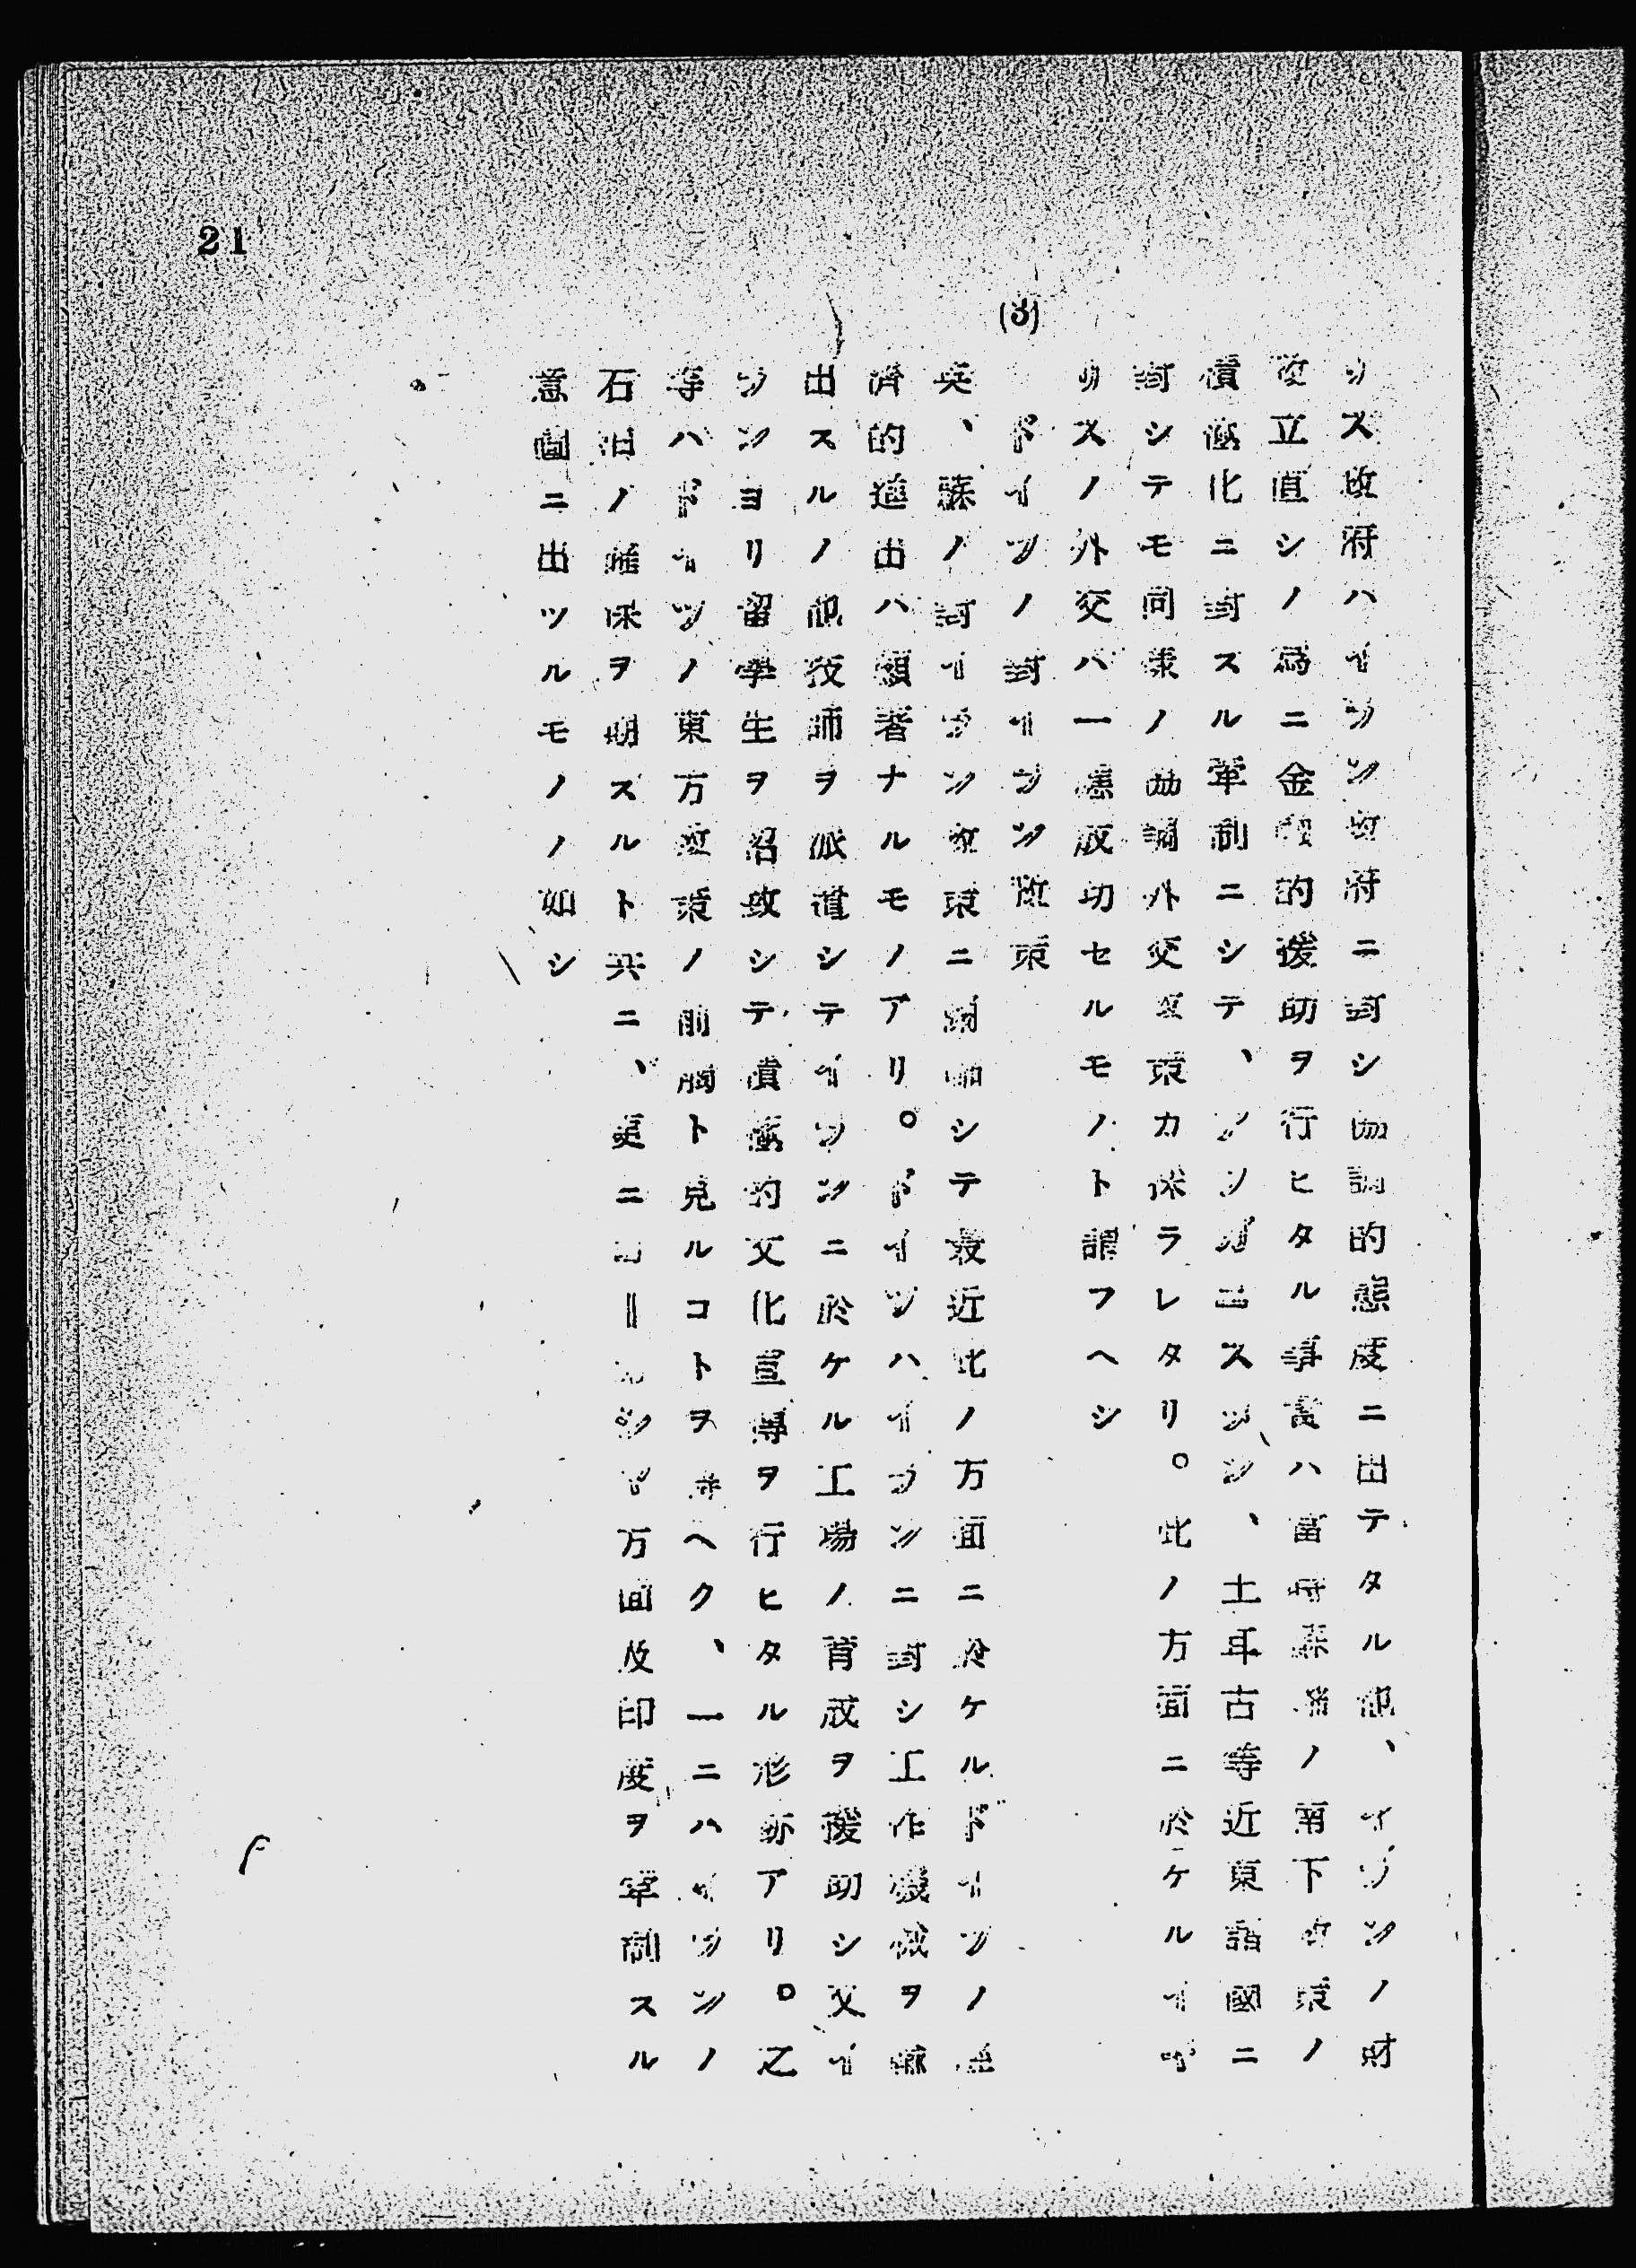 リス政府ハイラン政府ニ対シ協調的態度ニ出テタル他、イランノ財
政立直シノ為ニ金融的援助ヲ行ヒタル事実ハ当時蘇聯ノ南下政策ノ
積極化ニ対スル牽制ニシテ、アフガニスタン、土耳古等近東諸国ニ
対シテモ同様ノ協調外交政策カ採ラレタリ。此ノ方面ニ於ケルイギ
リスノ外交ハ一応成功セルモノト謂フヘシ
(3) ドイツノ対イラン政策
英、蘇ノ対イラン政策ニ関聯シテ最近此ノ方面ニ於ケルドイツノ経
済的進出ハ顕著ナルモノアリ。ドイツハイランニ対シ工作機械ヲ輸
出スルノ他技師ヲ派遣シテイランニ於ケル工場ノ育成ヲ援助シ又イ
ランヨリ留学生ヲ招致シテ積極的文化宣伝ヲ行ヒタル形跡アリ。之
等ハドイツノ東方政策ノ前哨ト見ルコトヲ得ヘク、一ニハイランノ
石油ノ確保ヲ期スルト共ニ、更ニ ー 方面及印度ヲ牽制スル
意図ニ出ツルモノノ如シ
21